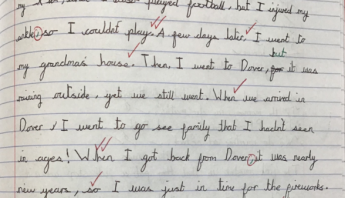 my played football, but I injured my
ankle so I couldn't play. A few days later, I went to
but
my grandmas house. Then, I went to Dover, for it was
raining outside, yet we still went. When we arrived in
Dover, I went to go see family that I hadn't seen
in ages! When I got back from Dover, it was nearly
new years, so I was just in time for the fireworks.